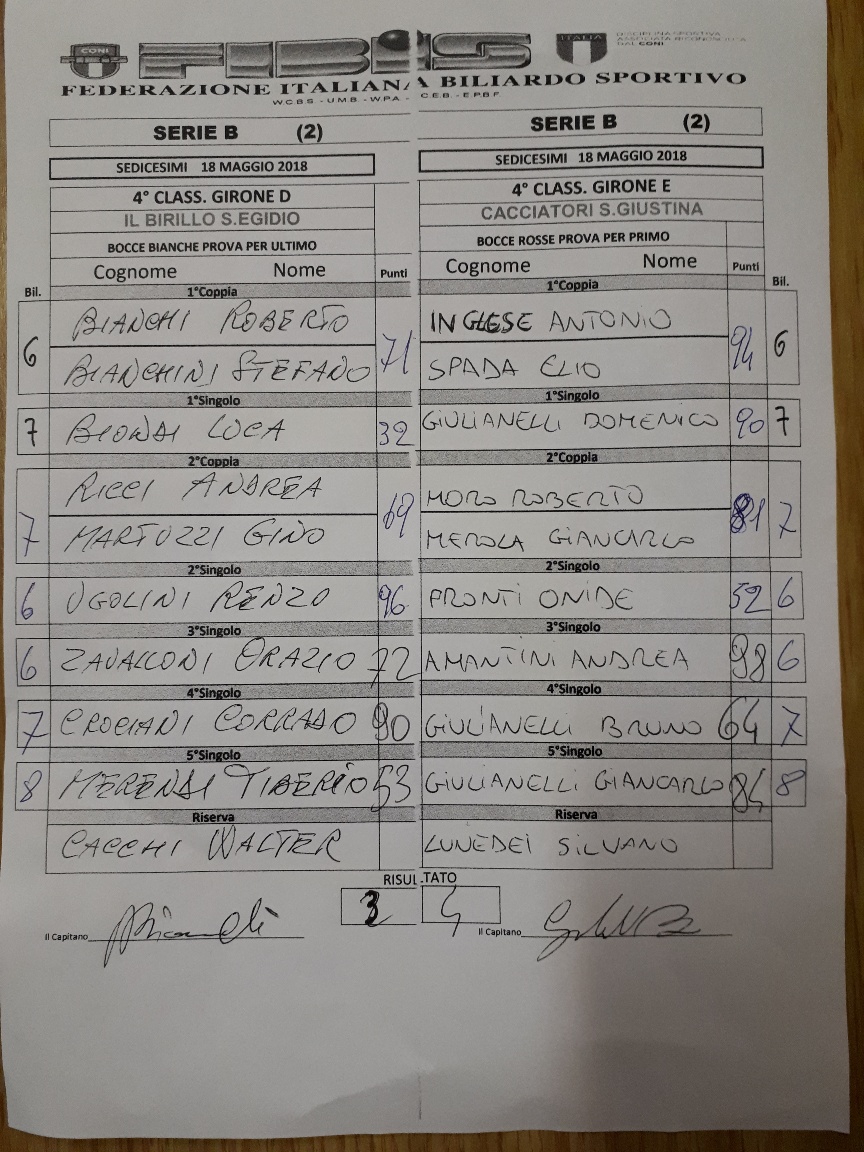 CONI
FIBIS
ITALIA
DISCIPLINA SPORTIVA
ASSOCIATA RICONOSCIUTA
DAL CONI
FEDERAZIONE ITALIANA BILIARDO SPORTIVO
WCBS - UMB - WPA - C.E.B. - EPBF
SERIE B (2) SERIE B (2)
SEDICESIMI 18 MAGGIO 2018 SEDICESIMI 18 MAGGIO 2018
4° CLASS. GIRONE D 4° CLASS. GIRONE E
IL BIRILLO S.EGIDIO CACCIATORI S.GIUSTINA
BOCCE BIANCHE PROVA PER ULTIMO BOCCE ROSSE PROVA PER PRIMO
Bil. Cognome Nome Punti Cognome Nome Punti Bil.
1°Coppia 1°Coppia
BIANCHI ROBERTO INGLESE ANTONIO
6 71 94 6
BIANCHINI STEFANO SPADA ELIO
1°Singolo 1°Singolo
7 BIONDI LUCA 32 GIULIANELLI DOMENICO 90 7
2°Coppia 2°Coppia
RICCI ANDREA MORO ROBERTO
7 69 81 7
MARTUZZI GINO MEROLA GIANCARLO
2°Singolo 2°Singolo
6 UGOLINI RENZO 96 PRONTI ONIDE 52 6
3°Singolo 3°Singolo
6 ZAVALLONI ORAZIO 72 AMANTINI ANDREA 98 6
4°Singolo 4°Singolo
7 CROCIANI CORRADO 90 GIULIANELLI BRUNO 64 7
5°Singolo 5°Singolo
8 MERENDI TIBERIO 53 GIULIANELLI GIANCARLO 84 8
Riserva Riserva
CACCHI WALTER LUNEDEI SILVANO
RISULTATO
3 4
Il Capitano Il Capitano